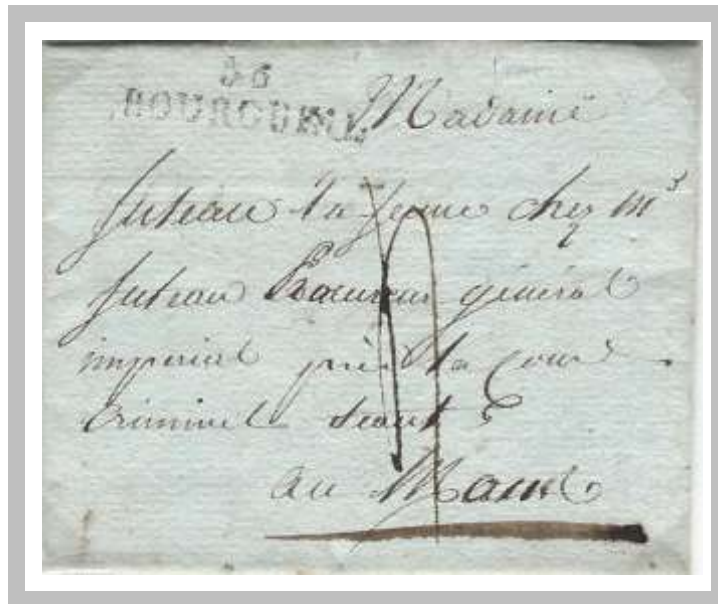 36
BOURGUEIL Madame
juteau la jeune chez mr
juteau Procureur général
imperial près la cour
Criminel séant
au Mans